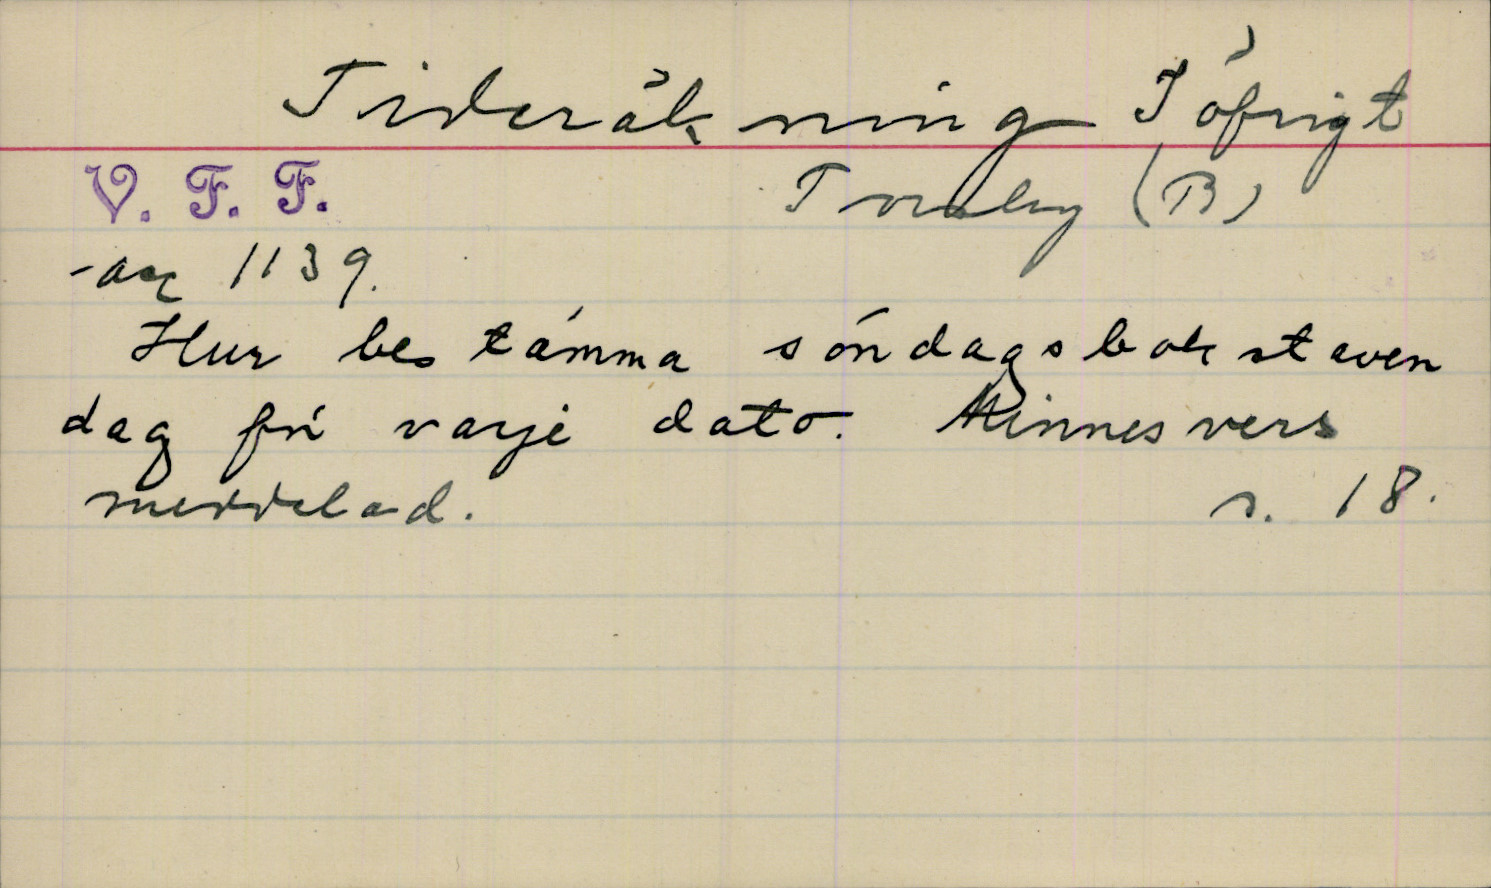 Tideräkning I öfrigt
V. F. F. Torsby (B)
acc 1139.
Hur bestämma söndagsbokstaven
dag för varje dato. Minnesvers
meddelad. s. 18.